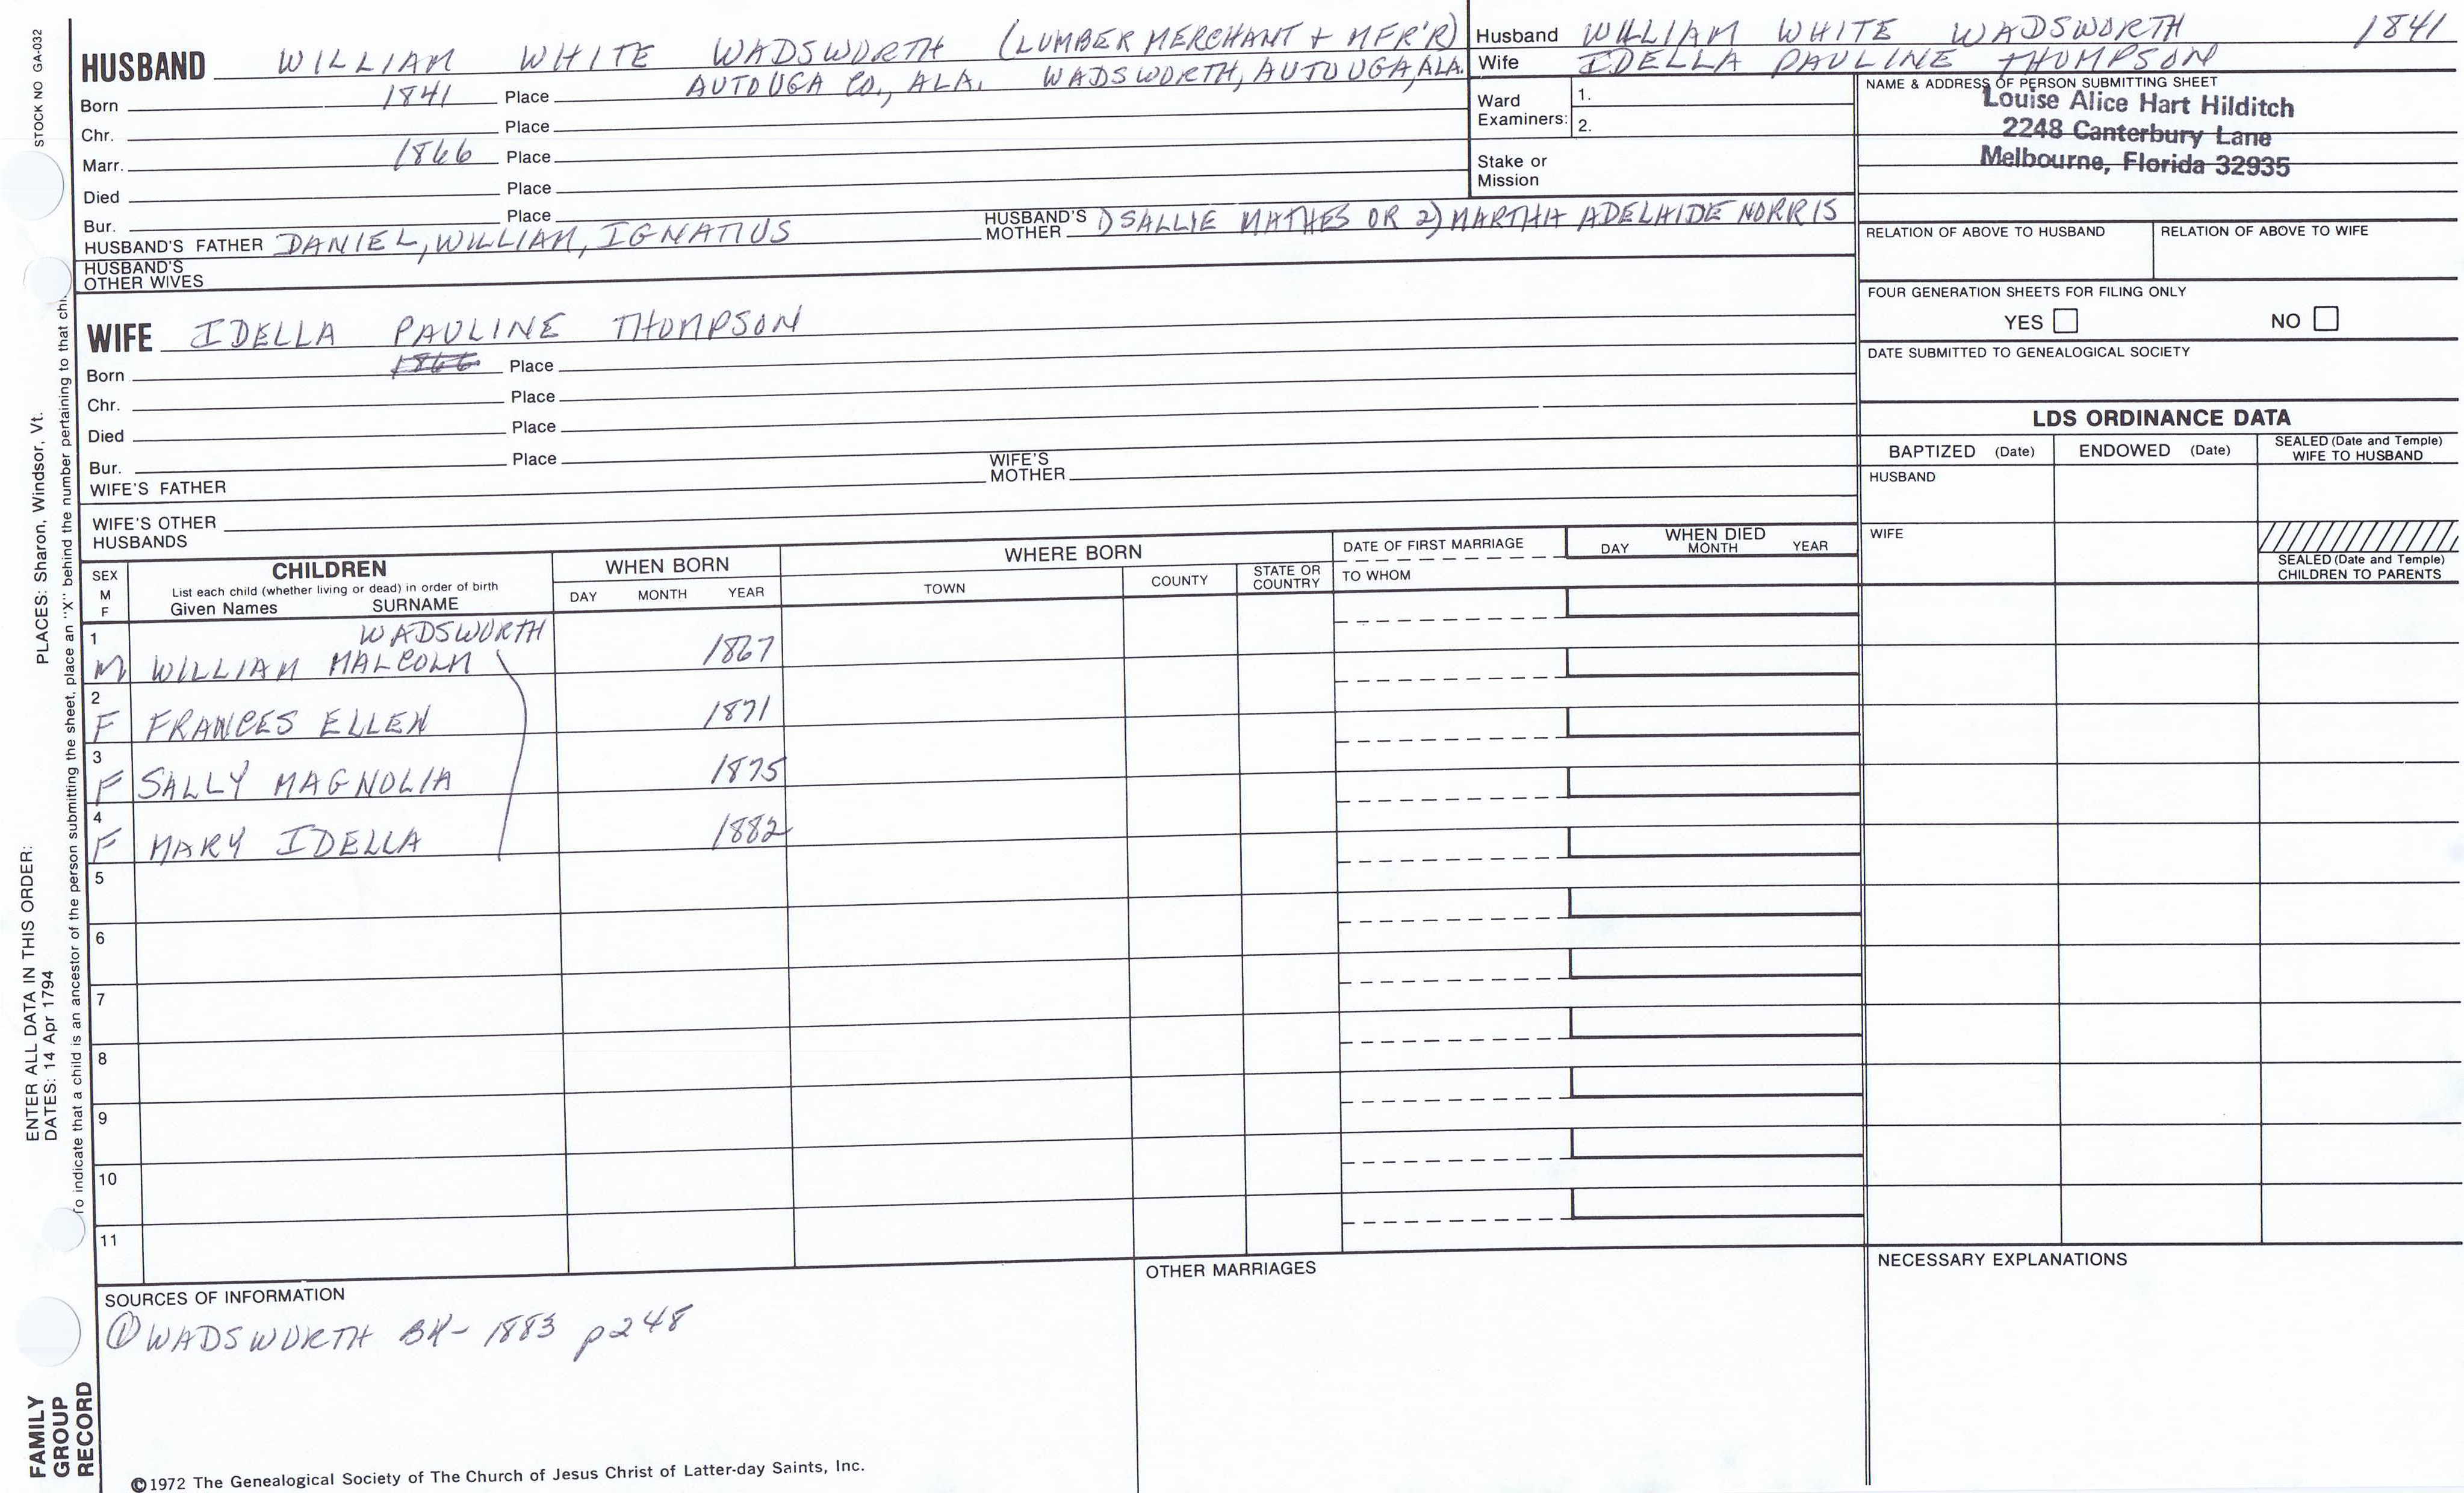 STOCK NO GA-032
HUSBAND WILLIAM WHITE WADSWORTH (LUMBER MERCHANT + MFR'R)
Born 1841 Place AUTOUGA CO., ALA. WADSWORTH, AUTOUGA, ALA.
Chr. Place
Marr. 1866 Place
Died Place
Bur. Place
HUSBAND'S FATHER DANIEL, WILLIAM, IGNATIUS HUSBAND'S MOTHER 1) SALLIE MATHES OR 2) MARTHA ADELAIDE NORRIS
HUSBAND'S OTHER WIVES
WIFE IDELLA PAULINE THOMPSON
Born 1866 Place
Chr. Place
Died Place
Bur. Place
WIFE'S FATHER WIFE'S MOTHER
WIFE'S OTHER HUSBANDS
Husband WILLIAM WHITE WADSWORTH 1841
Wife IDELLA PAULINE THOMPSON
Ward Examiners: 1.
2.
Stake or Mission
NAME & ADDRESS OF PERSON SUBMITTING SHEET
Louise Alice Hart Hilditch
2248 Canterbury Lane
Melbourne, Florida 32935
RELATION OF ABOVE TO HUSBAND RELATION OF ABOVE TO WIFE
FOUR GENERATION SHEETS FOR FILING ONLY
YES NO
DATE SUBMITTED TO GENEALOGICAL SOCIETY
LDS ORDINANCE DATA
BAPTIZED (Date) ENDOWED (Date) SEALED (Date and Temple) WIFE TO HUSBAND
HUSBAND
WIFE
SEALED (Date and Temple) CHILDREN TO PARENTS
SEX M F
CHILDREN
List each child (whether living or dead) in order of birth
Given Names SURNAME
WHEN BORN
DAY MONTH YEAR
WHERE BORN
TOWN COUNTY STATE OR COUNTRY
DATE OF FIRST MARRIAGE
TO WHOM
WHEN DIED
DAY MONTH YEAR
WADSWORTH
1 M WILLIAM MALCOLM 1867
2 F FRANCES ELLEN 1871
3 F SALLY MAGNOLIA 1875
4 F MARY IDELLA 1882
5
6
7
8
9
10
11
SOURCES OF INFORMATION
① WADSWORTH BK- 1883 p248
OTHER MARRIAGES
NECESSARY EXPLANATIONS
©1972 The Genealogical Society of The Church of Jesus Christ of Latter-day Saints, Inc.
FAMILY
GROUP
RECORD
ENTER ALL DATA IN THIS ORDER:
DATES: 14 Apr 1794
PLACES: Sharon, Windsor, Vt.
To indicate that a child is an ancestor of the person submitting the sheet, place an "X" behind the number pertaining to that